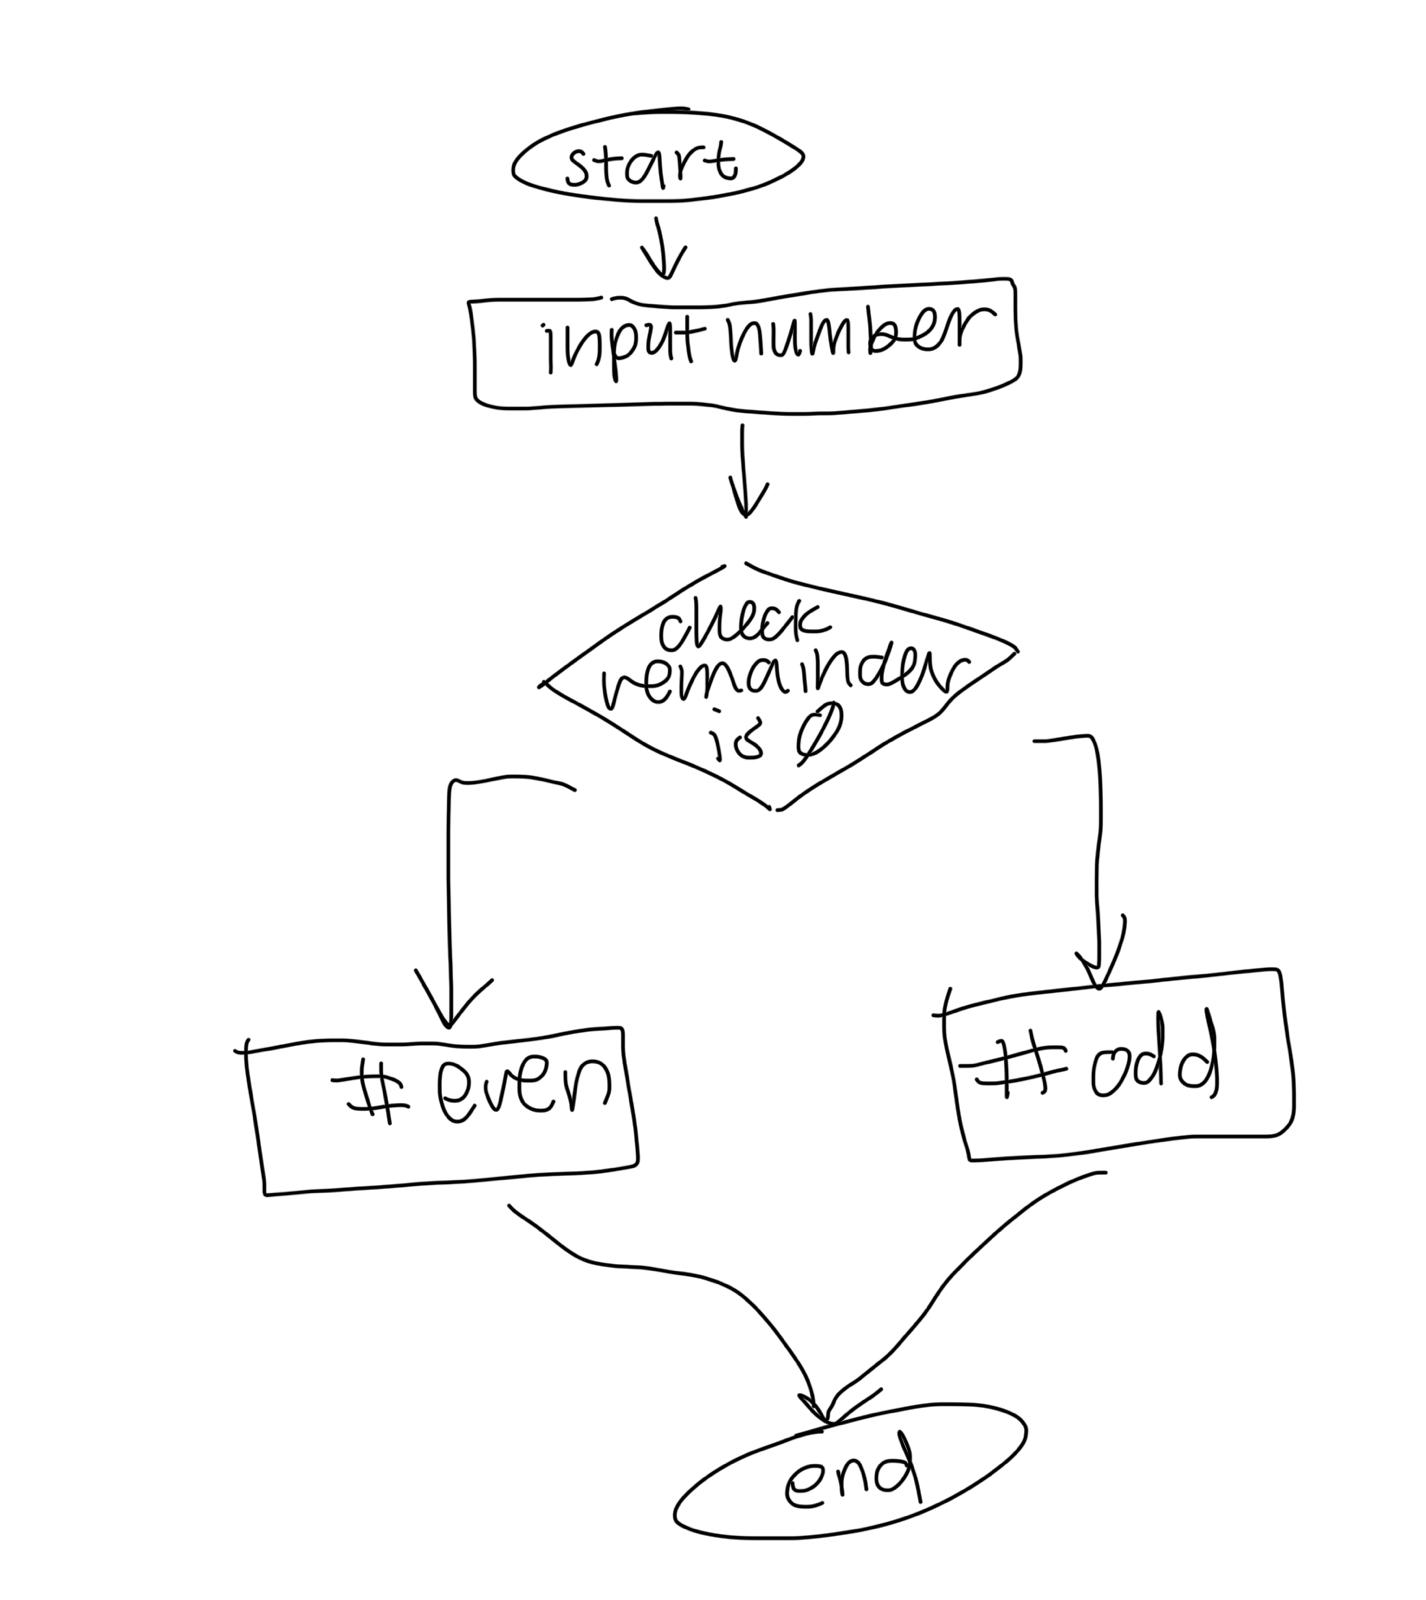 start
input number
check
remainder
is 0
# even
# odd
end